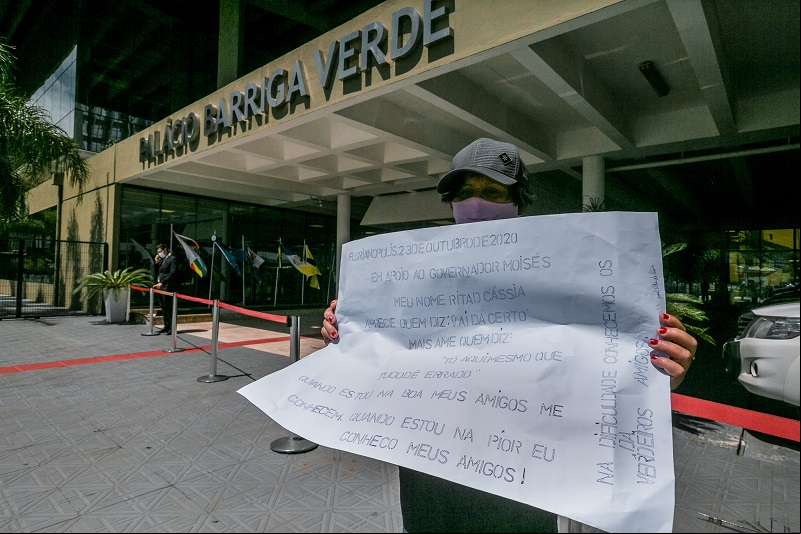 PALÁCIO BARRIGA VERDE
FLURIANOPOLIS, 23 DE OUTUBRO DE 2020
EM APOIO AO GOVERNADOR MOISÉS
MEU NOME RITA D CÁSSIA
QUEM DIZ: VAI DÁ CERTO
MAIS AME QUEM DIZ:
"TÔ AQUI MESMO QUE
TUDO DÊ ERRADO"
QUANDO ESTOU NA BOA MEUS AMIGOS ME
CONHECEM. QUANDO ESTOU NA PÍOR EU
CONHEÇO MEUS AMIGOS!
NA DIFICULDADE CONHECEMOS OS
VERDEIROS AMIGOS